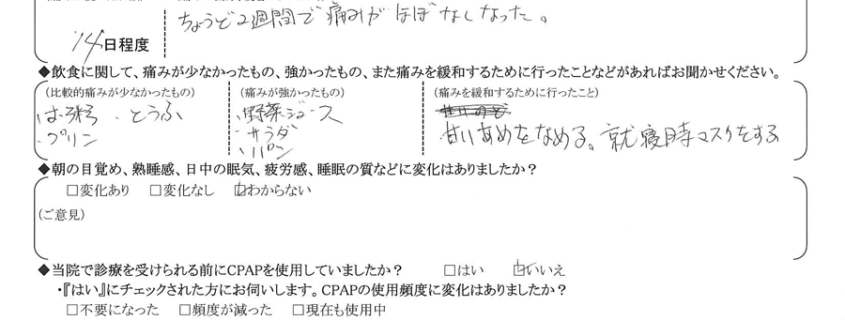 ちょうど2週間で痛みがほぼなくなった。
14日程度
◆飲食に関して、痛みが少なかったもの、強かったもの、また痛みを緩和するために行ったことなどがあればお聞かせください。
(比較的痛みが少なかったもの) (痛みが強かったもの) (痛みを緩和するために行ったこと)
・お粥 ・とうふ ・野菜ジュース
・プリン ・サラダ 甘いあめをなめる。就寝時マスクをする
・パン
◆朝の目覚め、熟睡感、日中の眠気、疲労感、睡眠の質などに変化はありましたか?
□変化あり □変化なし ☑わからない
(ご意見)
◆当院で診療を受けられる前にCPAPを使用していましたか? □はい ☑いいえ
・『はい』にチェックされた方にお伺いします。CPAPの使用頻度に変化はありましたか?
□不要になった □頻度が減った □現在も使用中